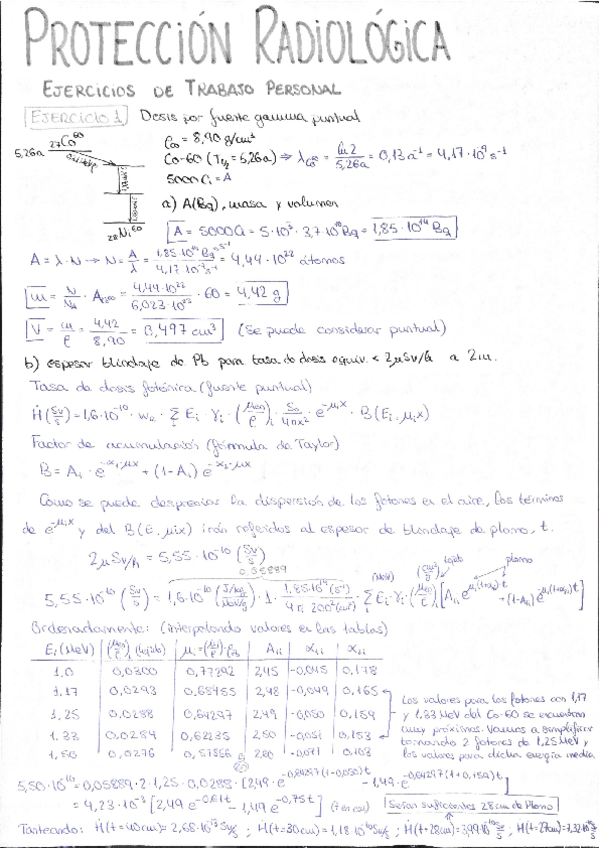 PROTECCIÓN RADIOLÓGICA
EJERCICIOS DE TRABAJO PERSONAL
EJERCICIO 1) Dosis por fuente gamma puntual
5,26a 27Co60
ρCo = 8,90 g/cm³
Co-60 (T1/2 = 5,26a) ⇒ λCo60 = ln 2 / 5,26a = 0,13 a⁻¹ = 4,17·10⁻⁹ s⁻¹
5000Ci = A
28Ni60
a) A(Bq), masa y volumen
A = 5000Ci = 5·10³·3,7·10¹⁰Bq = 1,85·10¹⁴ Bq
A = λ·N → N = A/λ = 1,85·10¹⁴ Bq / 4,17·10⁻⁹ s⁻¹ = 4,44·10²² átomos
m = N/NA · ACo60 = 4,44·10²² / 6,023·10²³ · 60 = 4,42 g
V = m/ρ = 4,42/8,90 = 0,497 cm³ (se puede considerar puntual)
b) espesor blindaje de Pb para tasa de dosis equiv. < 2μSv/h a 2m.
Tasa de dosis fotónica (fuente puntual)
Ḣ(Sv/s) = 1,6·10⁻¹⁰ · we · Σ Ei · γi · (μen/ρ)i · So/4πx² · e^-μix · B(Ei, μix)
Factor de acumulación (fórmula de Taylor)
B = Ai · e^-α1iμx + (1-Ai) e^-α2·μx
Como se puede despreciar la dispersión de los fotones en el aire, los términos
de e^-μix y del B(E, μix) irán referidos al espesor de blindaje de plomo, t.
2μSv/h = 5,55·10⁻¹⁰ (Sv/s)
0,05889 (MeV) (cm²/g) tejido plomo
5,55·10⁻¹⁰ (Sv/s) = 1,6·10⁻¹⁰ (J/kg / MeV/g) · 1 · 1,85·10¹⁴ (s⁻¹) / 4π 200² (cm²) · Σ Ei·γi·(μen/ρ)i
Ordenadamente: (interpolando valores en las tablas)
Ei (MeV) | (μen/ρ)i (tejido) | μi = (μ/ρ)·ρPb | A1i | α1i | α2i
1.0 0,0300 0,77292 2,45 -0,045 0,178
1.17 0,0293 0,68455 2,48 -0,049 0,165
1.25 0,0288 0,64297 2,49 -0,050 0,159
1.33 0,0284 0,62235 2,50 -0,051 0,153
1,50 0,0276 2,60 -0,071 0,103
Los valores para los fotones con 1,17
y 1,33 MeV del Co-60 se encuentran
muy próximos. Vamos a simplificar
tomando 2 fotones de 1,25 MeV y
los valores para dicha energía media.
5,50·10⁻¹⁰ = 0,05889·2·1,25·0,0288·[2,49·e^-0,64297(1-0,050)t - 1,49·e^-0,64297(1+0,159)t]
= 4,23·10⁻³ [2,49 e^-0,61t - 1,49 e^-0,75t] (t en cm) Serán suficientes 28cm de Plomo
Tanteando: Ḣ(t=40cm) = 2,68·10⁻¹³ Sv/s ; Ḣ(t=30cm) = 1,18·10⁻¹⁰ Sv/s ; Ḣ(t=28cm) = 3,99·10⁻¹⁰ Sv/s ; Ḣ(t=27cm) = 7,32·10⁻¹⁰ Sv/s